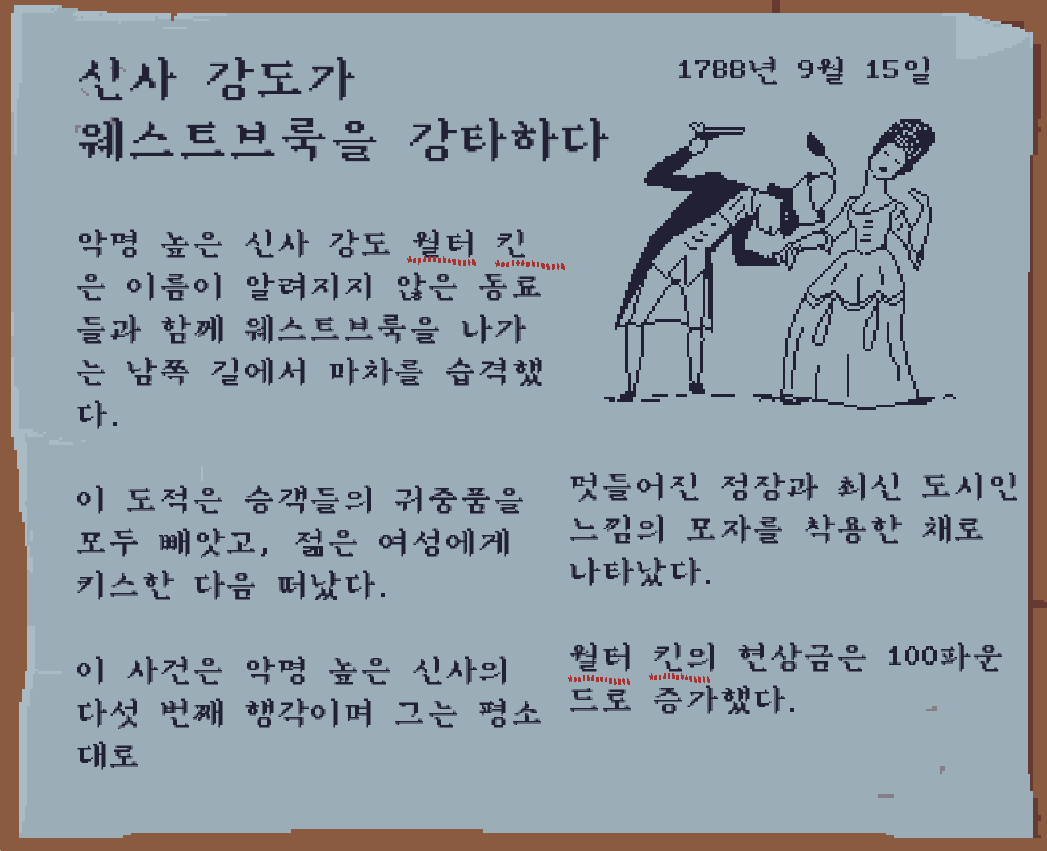 산사 강도가
웨스트브룩을 강타하다
1788년 9월 15일
악명 높은 신사 강도 월터 킨
은 이름이 알려지지 않은 동료
들과 함께 웨스트브룩을 나가
는 남쪽 길에서 마차를 습격했
다.
이 도적은 승객들의 귀중품을
모두 빼앗고, 젊은 여성에게
키스한 다음 떠났다.
이 사건은 악명 높은 신사의
다섯 번째 행각이며 그는 평소
대로
멋들어진 정장과 최신 도시인
느낌의 모자를 착용한 채로
나타났다.
월터 킨의 현상금은 100파운
드로 증가했다.